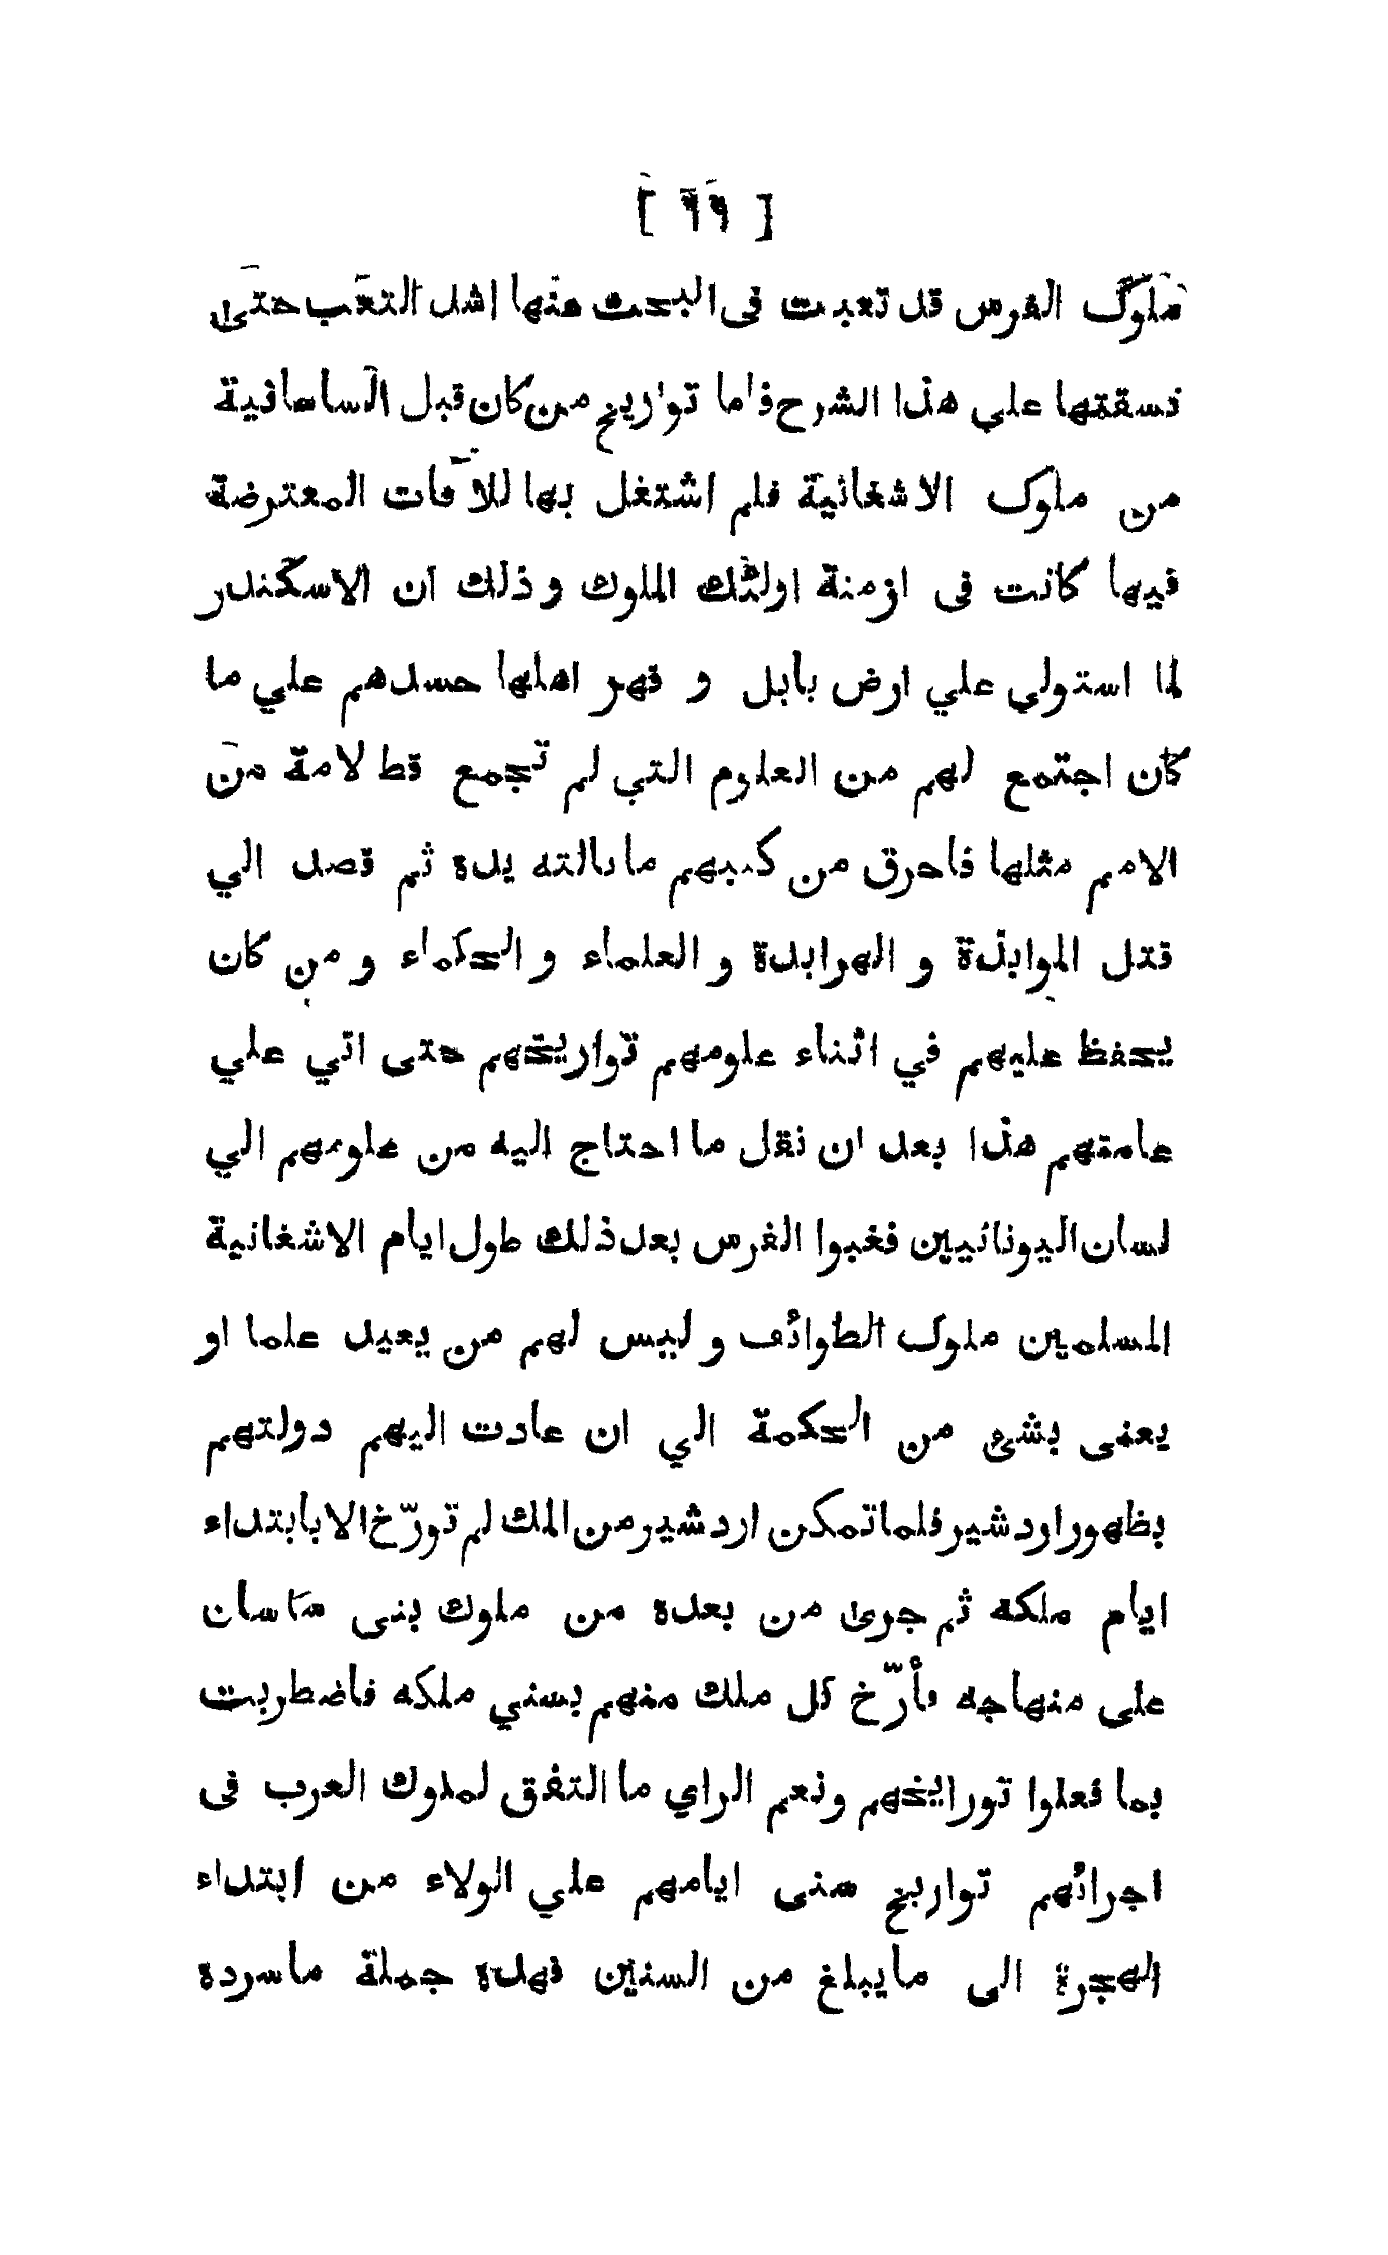 [ ٦٩ ]
ملوك الفرس قد تعبت فى البحث عنها اشد التعب حتى
نسقتها علي هذا الشرح فاما تواريخ من كان قبل الساسانية
من ملوك الاشغانية فلم اشتغل بها للآفات المعترضة
فيها كانت فى ازمنة اولئك الملوك و ذلك ان الاسكندر
لما استولي علي ارض بابل و قهر اهلها حسدهم علي ما
كان اجتمع لهم من العلوم التي لم تجمع قط لامة من
الامم مثلها فاحرق من كتبهم ما نالته يده ثم قصد الي
قتل الموابذة و الهرابدة و العلماء و الحكماء و من كان
يحفظ عليهم في اثناء علومهم تواريخهم حتى اتي علي
عامتهم هذا بعد ان نقل ما احتاج اليه من علومهم الي
لسان اليونانيين فغبوا الفرس بعد ذلك طول ايام الاشغانية
المسلمين ملوك الطوائف و ليس لهم من يعيد علما او
يعنى بشئ من الحكمة الي ان عادت اليهم دولتهم
بظهور اردشير فلما تمكن اردشير من الملك لم تورّخ الا بابتداء
ايام ملكه ثم جرى من بعده من ملوك بنى ساسان
على منهاجه فأرّخ كل ملك منهم بسني ملكه فاضطربت
بما فعلوا تورايخهم و نعم الراي ما التفق لملوك العرب فى
اجرائهم تواريخ سنى ايامهم علي الولاء من ابتداء
الهجرة الى مايبلغ من السنين فهده جملة ماسرده